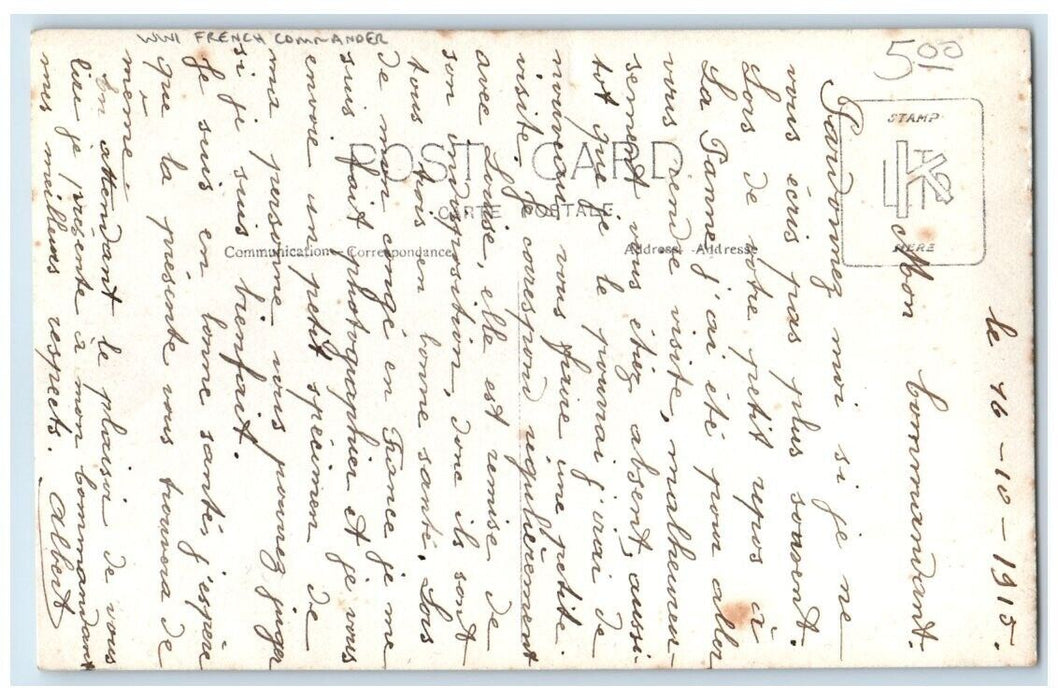 WWI FRENCH COMMANDER
5.00
STAMP
HERE
POST CARD
CARTE POSTALE
Communication - Correspondance
Address - Adresse
le 10 - 10 - 1915.
Mon Commandant.
Pardonnez moi si je ne
vous écris pas plus souvent.
Lors de notre petit repos à
La Panne j'ai été pour aller
vous rendre visite, malheureu-
sement vous étiez absent, aussi-
tot que je le pourrai j'irai de
nouveau vous faire une petite
visite. Je correspond régulièrement
avec Loise, elle est remise de
son indisposition, donc ils sont
tous trois en bonne santé. Lors
de mon congé en France je me
suis fait photographier et je vous
envoie un petit spécimen de
ma personne vous pourrez juger
si je suis bienfait.
Je suis en bonne santé, j'espère
que la présente vous trouvera de
même.
En attendant le plaisir de vous
lire je présente à mon Commandant
mes meilleurs respects. Albert